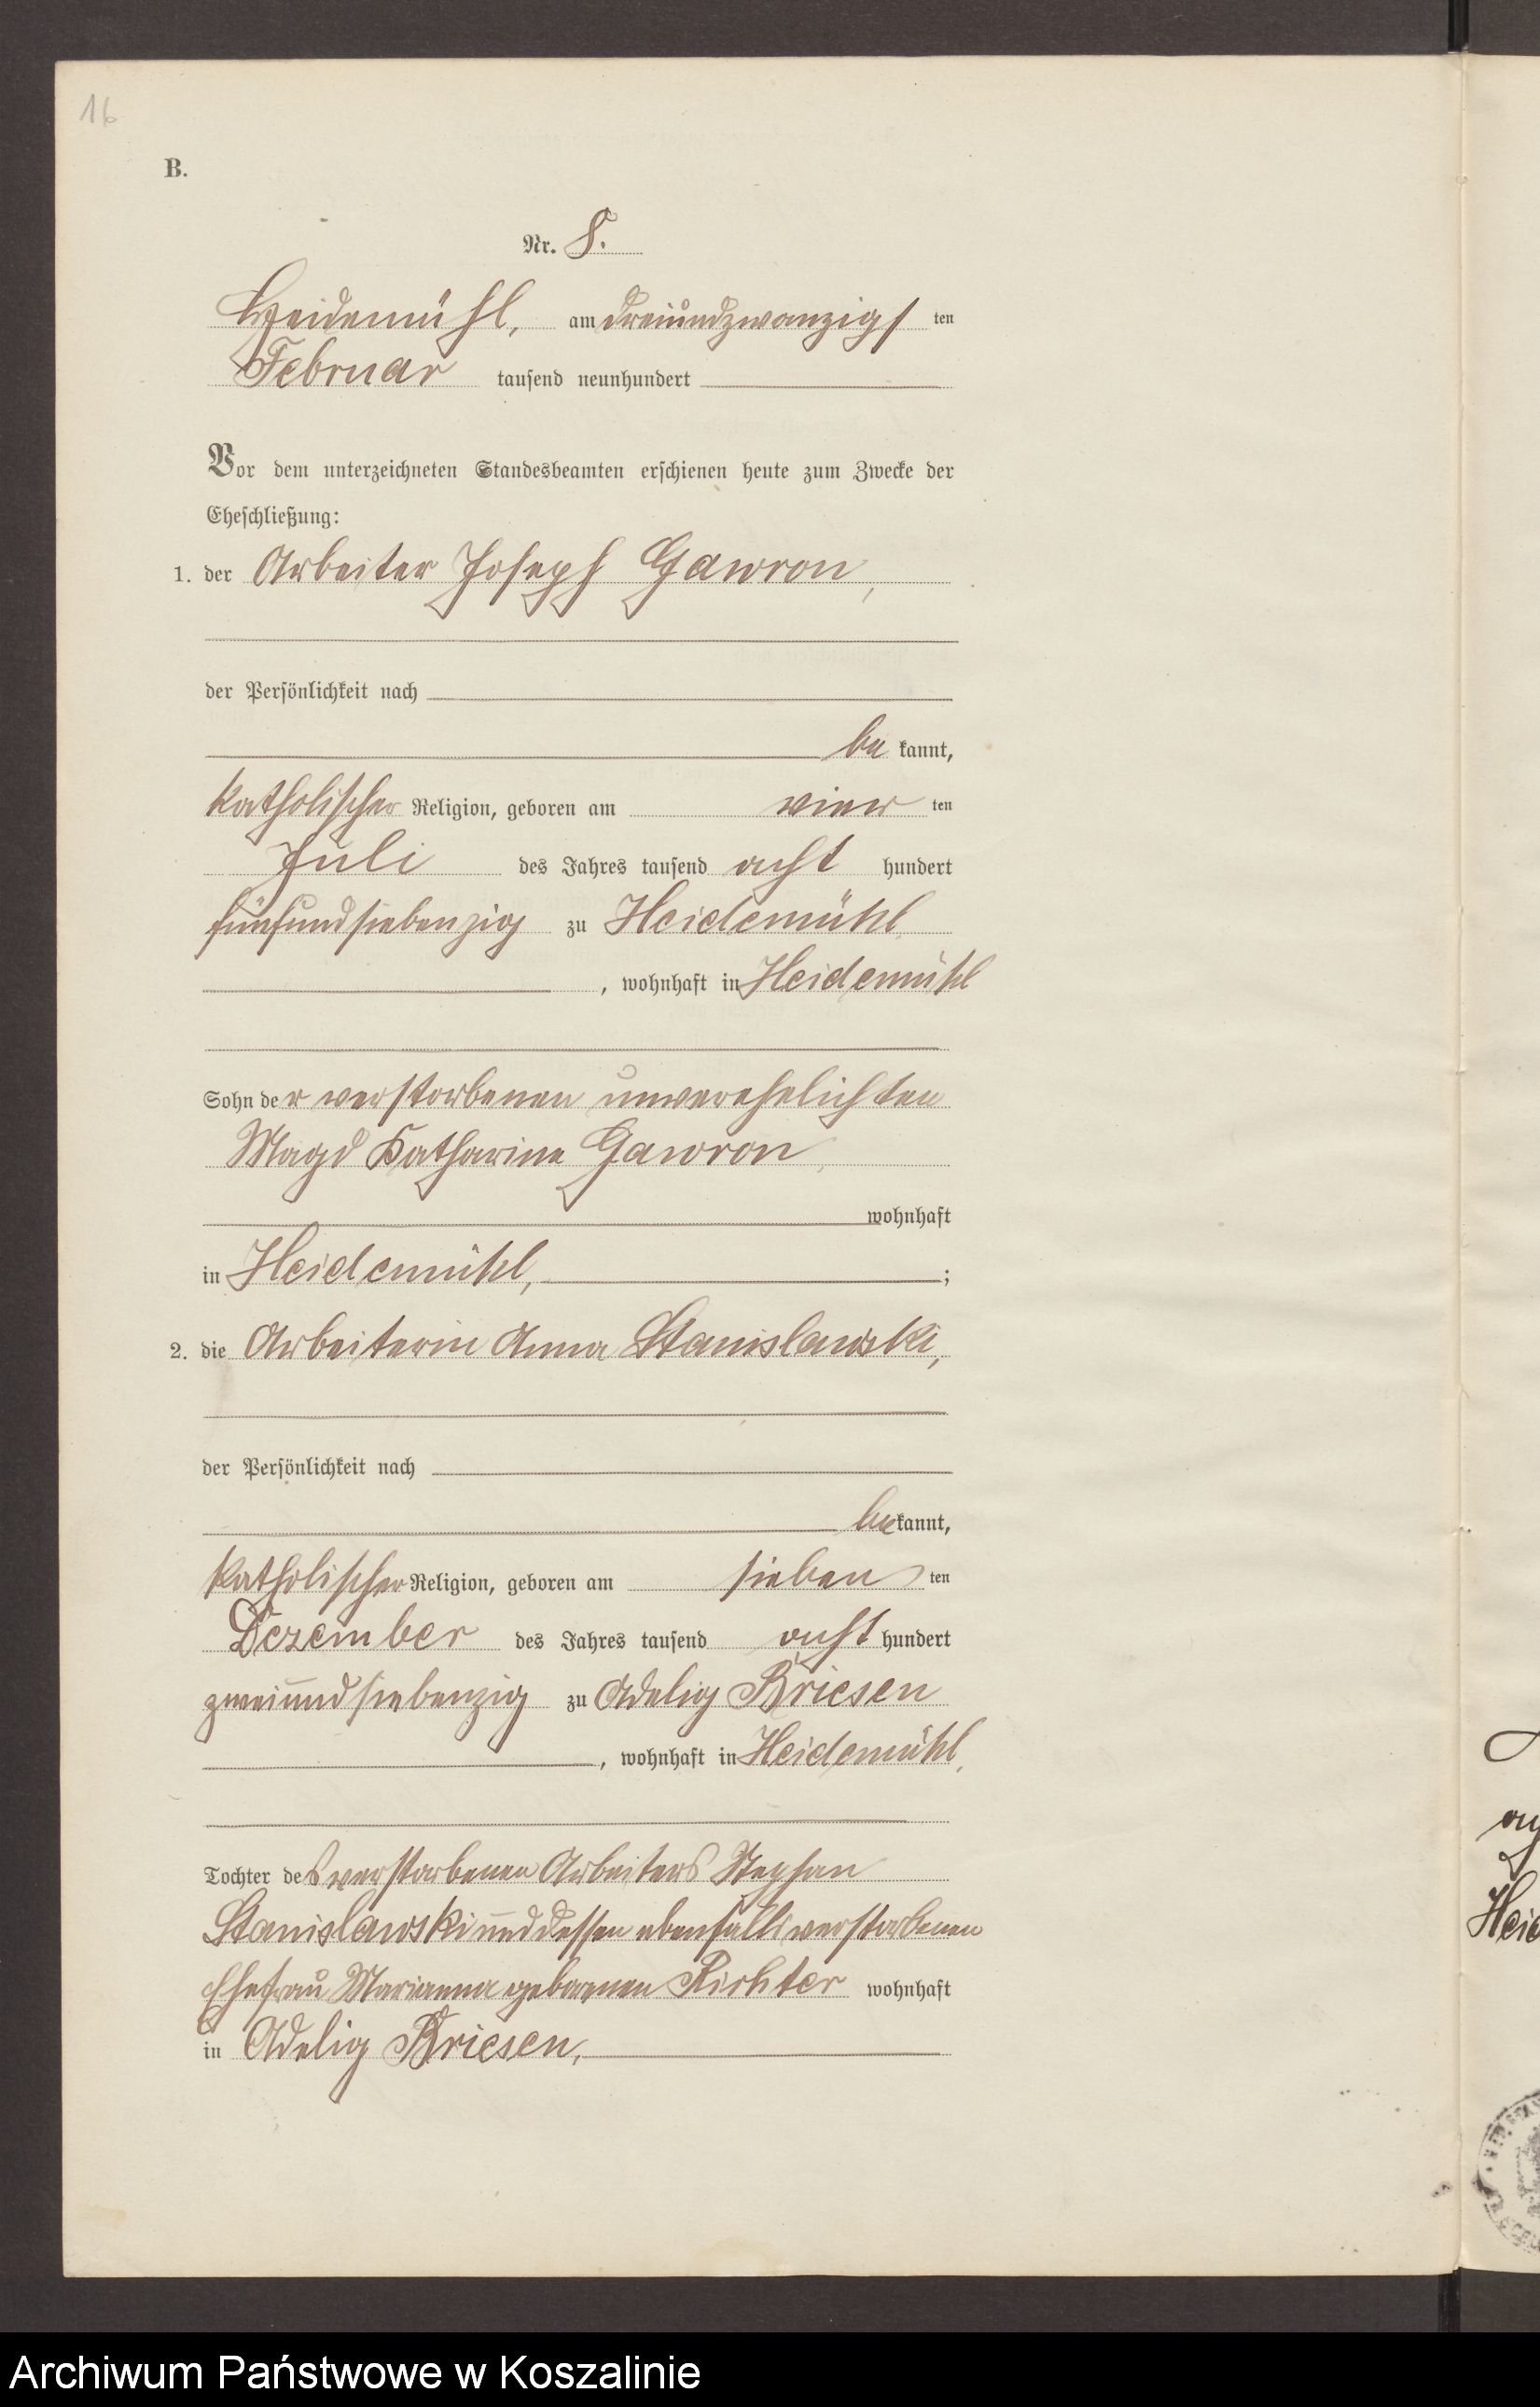 16
B.
Nr. 8.
Heidemühl, am dreiundzwanzigsten
Februar tausend neunhundert
Vor dem unterzeichneten Standesbeamten erschienen heute zum Zwecke der
Eheschließung:
1. der Arbeiter Joseph Gawron,
der Persönlichkeit nach
be kannt,
katholischer Religion, geboren am vier ten
Juli des Jahres tausend acht hundert
fünfundsiebenzig zu Heidemühl
, wohnhaft in Heidemühl
Sohn der verstorbenen unverehelichten
Magd Katharina Gawron,
wohnhaft
in Heidemühl, ;
2. die Arbeiterin Anna Stanislawski,
der Persönlichkeit nach
bekannt,
katholischer Religion, geboren am sieben ten
Dezember des Jahres tausend acht hundert
zweiundsiebenzig zu Adelig Briesen
, wohnhaft in Heidemühl,
Tochter des verstorbenen Arbeiters Stephan
Stanislawski und dessen ebenfalls verstorbenen
Ehefrau Marianna geborenen Richter wohnhaft
in Adelig Briesen,
Heid
Archiwum Państwowe w Koszalinie